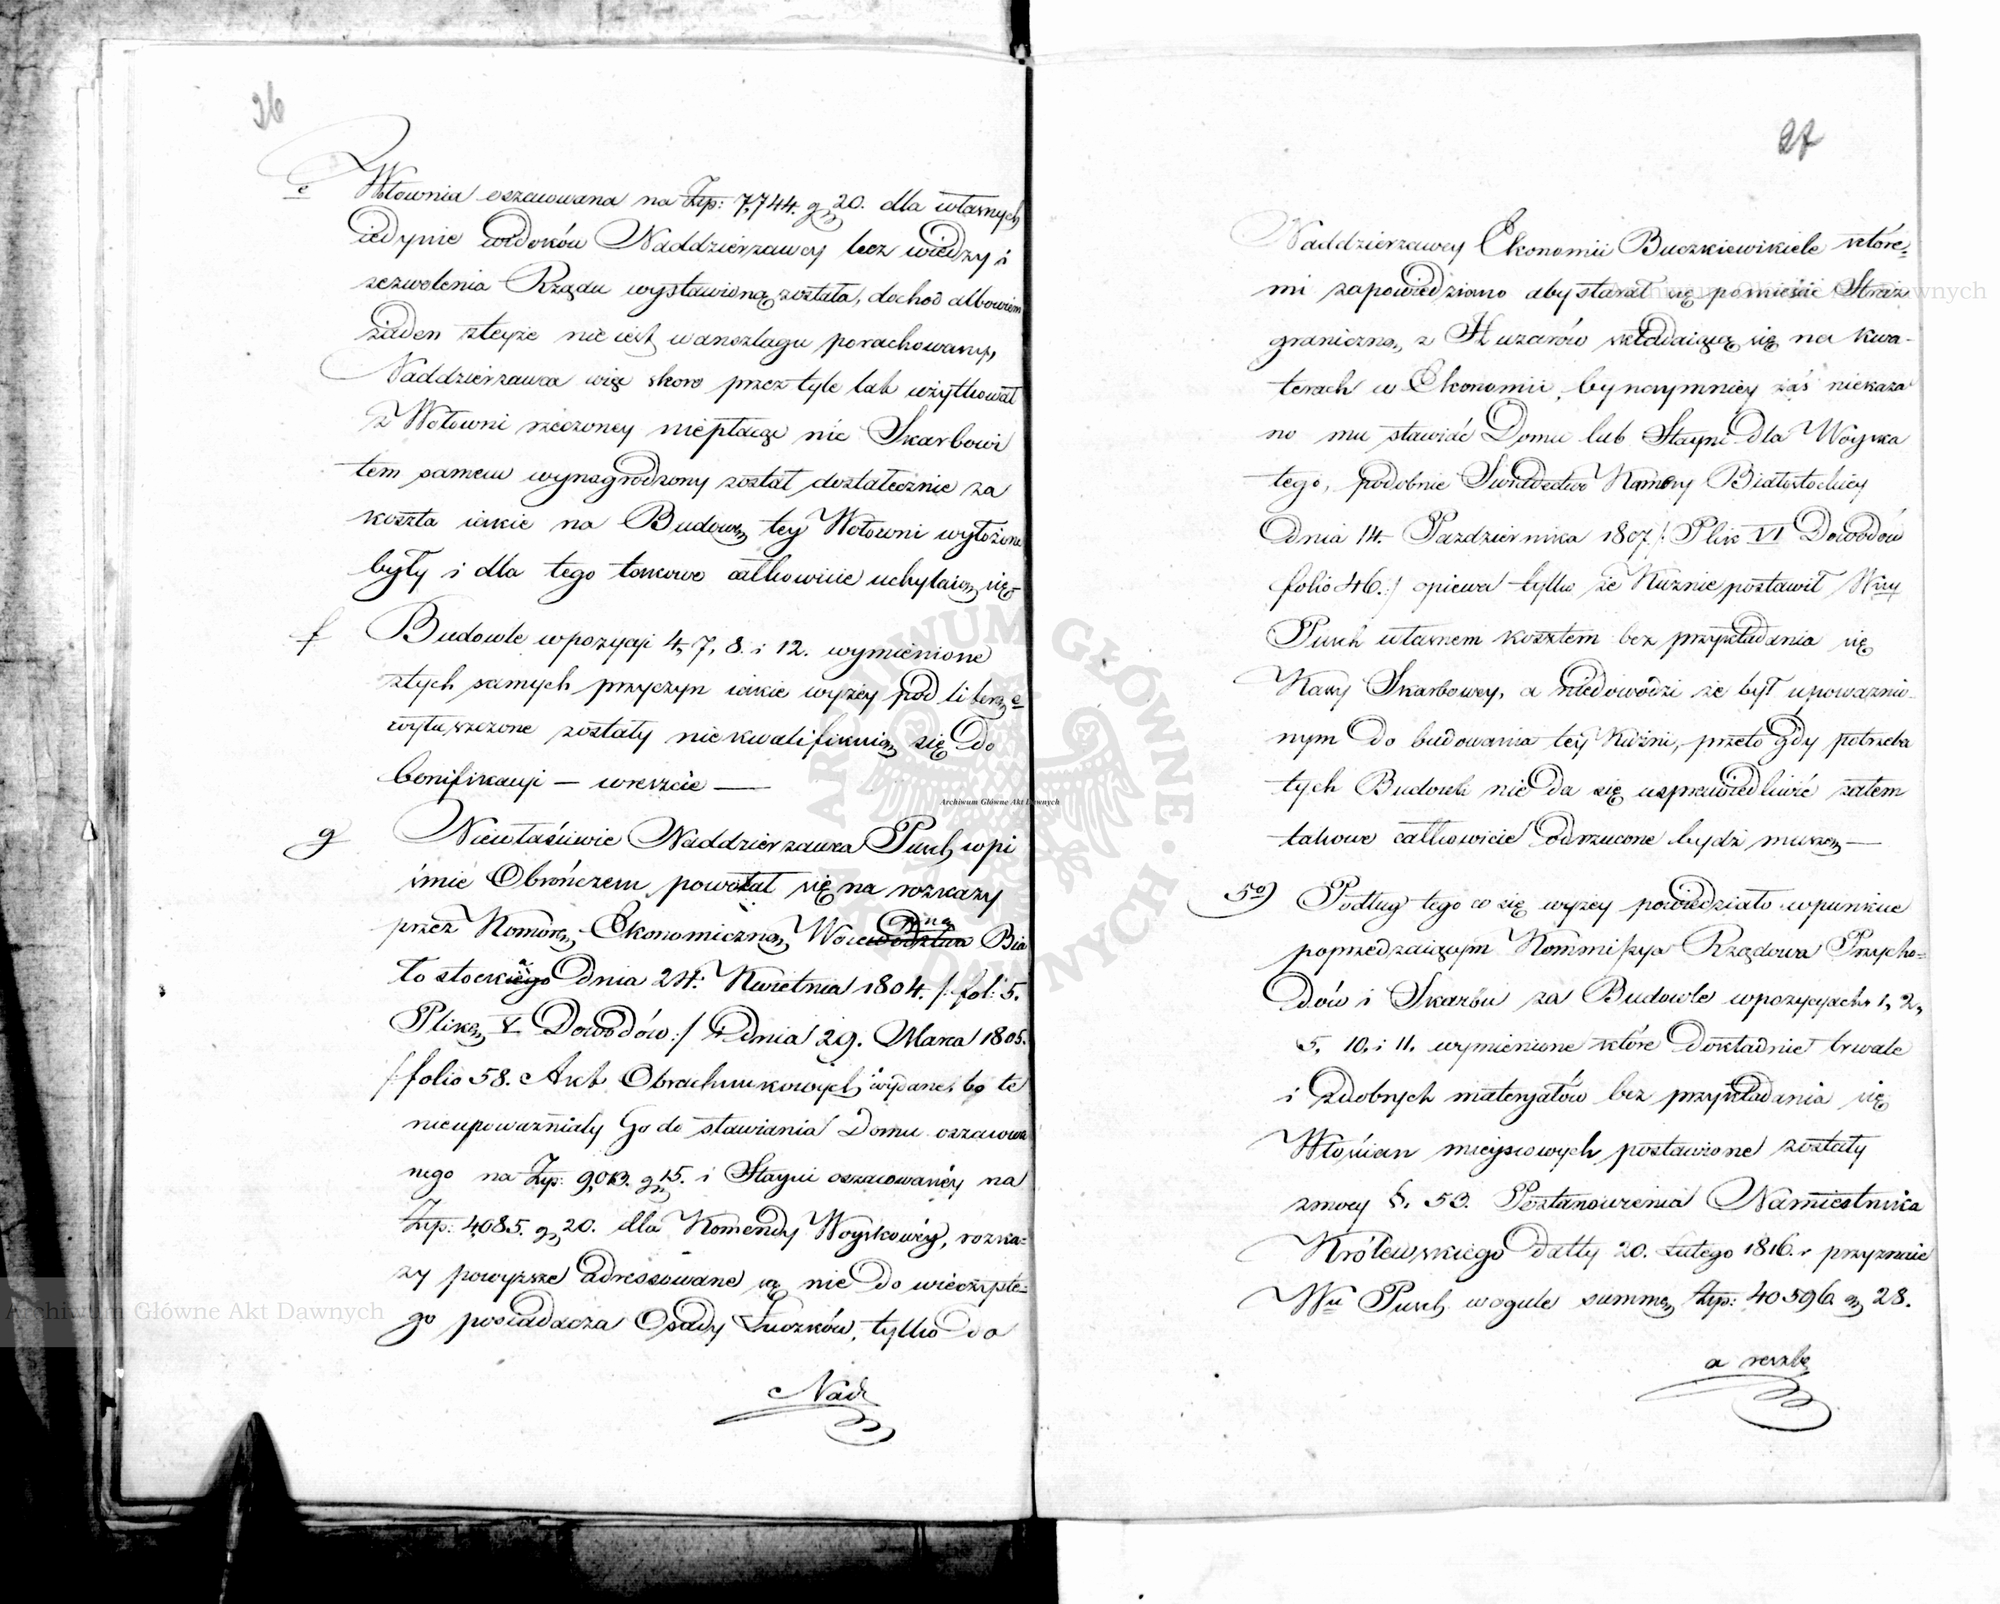 26
e Wołownia oszacowana na Złp: 7,744. gr 20. dla własnych
iedynie widoków Naddzierzawcy bez wiedzy i
zezwolenia Rządu wystawioną została, dochod albowiem
żaden zteyże nie iest w anszlagu porachowany,
Naddzierzawca więc skoro przez tyle lat użytkował
z Wołowni rzeczoney niepłacąc nic Skarbowi
tem samem wynagrodzony został dostatecznie za
koszta iakie na Budowę tey Wołowni wyłożone
były i dla tego takowe całkowicie uchylaią się
f Budowle w pozycyi 4, 7, 8. i 12. wymienione
ztych samych przyczyn iakie wyżey pod literą e
wyłuszczone zostały niekwalifikuią się do
bonifikacyi — wreszcie —
g Niewłaściwie Naddzierzawca Pusch w pi
śmie Obrończem powołał się na rozkazy
przez Komorę Ekonomiczną Woienną Bia
łostocką dnia 24. Kwietnia 1804. /: fol: 5.
Pliku V. Dowodów :/ i dnia 29. Marca 1805.
/: folio 58. Akt Obrachunkowych wydane, bo te
nieupoważniały Go do stawiania Domu oszacowa
nego na Złp: 9,063. gr 15. i Stayni oszacowanéy na
Złp: 4,085. gr 20. dla Komendy Woyskowéy, rozka=
zy powyższe adressowane są nie do wieczyste=
go posiadacza Osady Łuczków, tylko do
Nad
27
Naddzierzawcy Ekonomii Buczkiewikiele które=
mi zapowiedziano aby starał się pomieścić Straz
graniczną, z Huzarów składaiącą się na kwa-
terach w Ekonomii, by naymniey zaś niekaza
no mu stawiać Domu lub Stayni dla Woyska
tego, podobnie Swiadectwo Kamery Białostockiey
dnia 14. Pazdziernika 1807. /: Plik VI Dowodów
folio 46. :/ opiewa tylko że Kuźnie postawił Wny
Pusch własnem kosztem bez przykładania się
Kassy Skarbowey, a niedowodzi że był upoważnio-
nym do budowania tey Kuźni, przeto gdy potrzeba
tych Budowli nie da się usprawiedliwić zatem
takowe całkowicie odrzucone bydź muszą —
5o) Podług tego co się wyżey powiedziało w punkcie
poprzedzaiącym Kommissya Rządowa Przycho=
dów i Skarbu za Budowle w pozycyach 1, 2,
5. 10. i 11. wymienione które dokładnie trwale
i zdobnych materyałów bez przykładania się
Włościan mieyscowych postawione zostały
zmocy §. 53. Postanowienia Namiestnika
Królewskiego datty 20. Lutego 1816. r przyznaie
Wu Pusch wogule summę Złp: 40596 gr 28.
a resztę
Archiwum Główne Akt Dawnych
Archiwum Główne Akt Dawnych
Archiwum Główne Akt Dawnych
ARCHIWUM GŁÓWNE AKT DAWNYCH